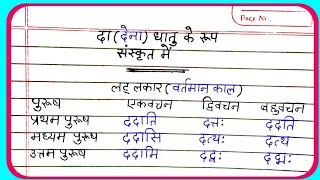 Page No.
दा (देना) धातु के रूप
संस्कृत में
लट् लकार (वर्तमान काल)
पुरूष एकवचन द्विवचन बहुवचन
प्रथम पुरूष ददाति दत्तः ददति
मध्यम पुरूष ददासि दत्थः दत्थ
उत्तम पुरूष ददामि दद्वः दद्मः